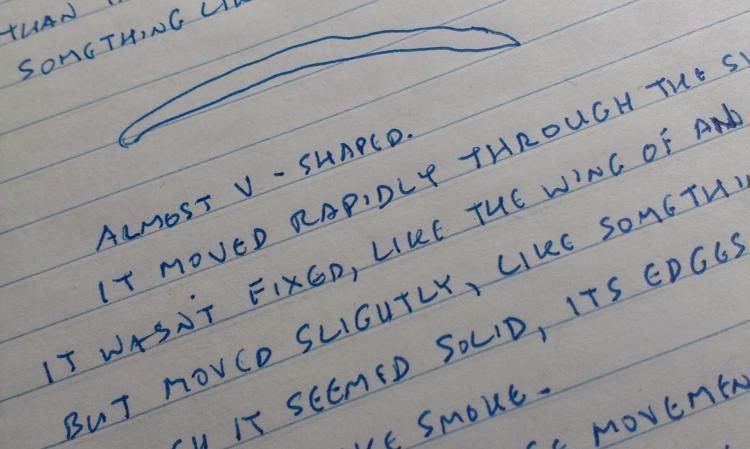 THAN
SOMETHING
ALMOST V-SHAPED.
IT MOVED RAPIDLY THROUGH THE
IT WASN'T FIXED, LIKE THE WING OF AND
BUT MOVED SLIGHTLY, LIKE SOMETHIN
IT SEEMED SOLID, ITS EDGES
SMOKE.
MOVEMEN